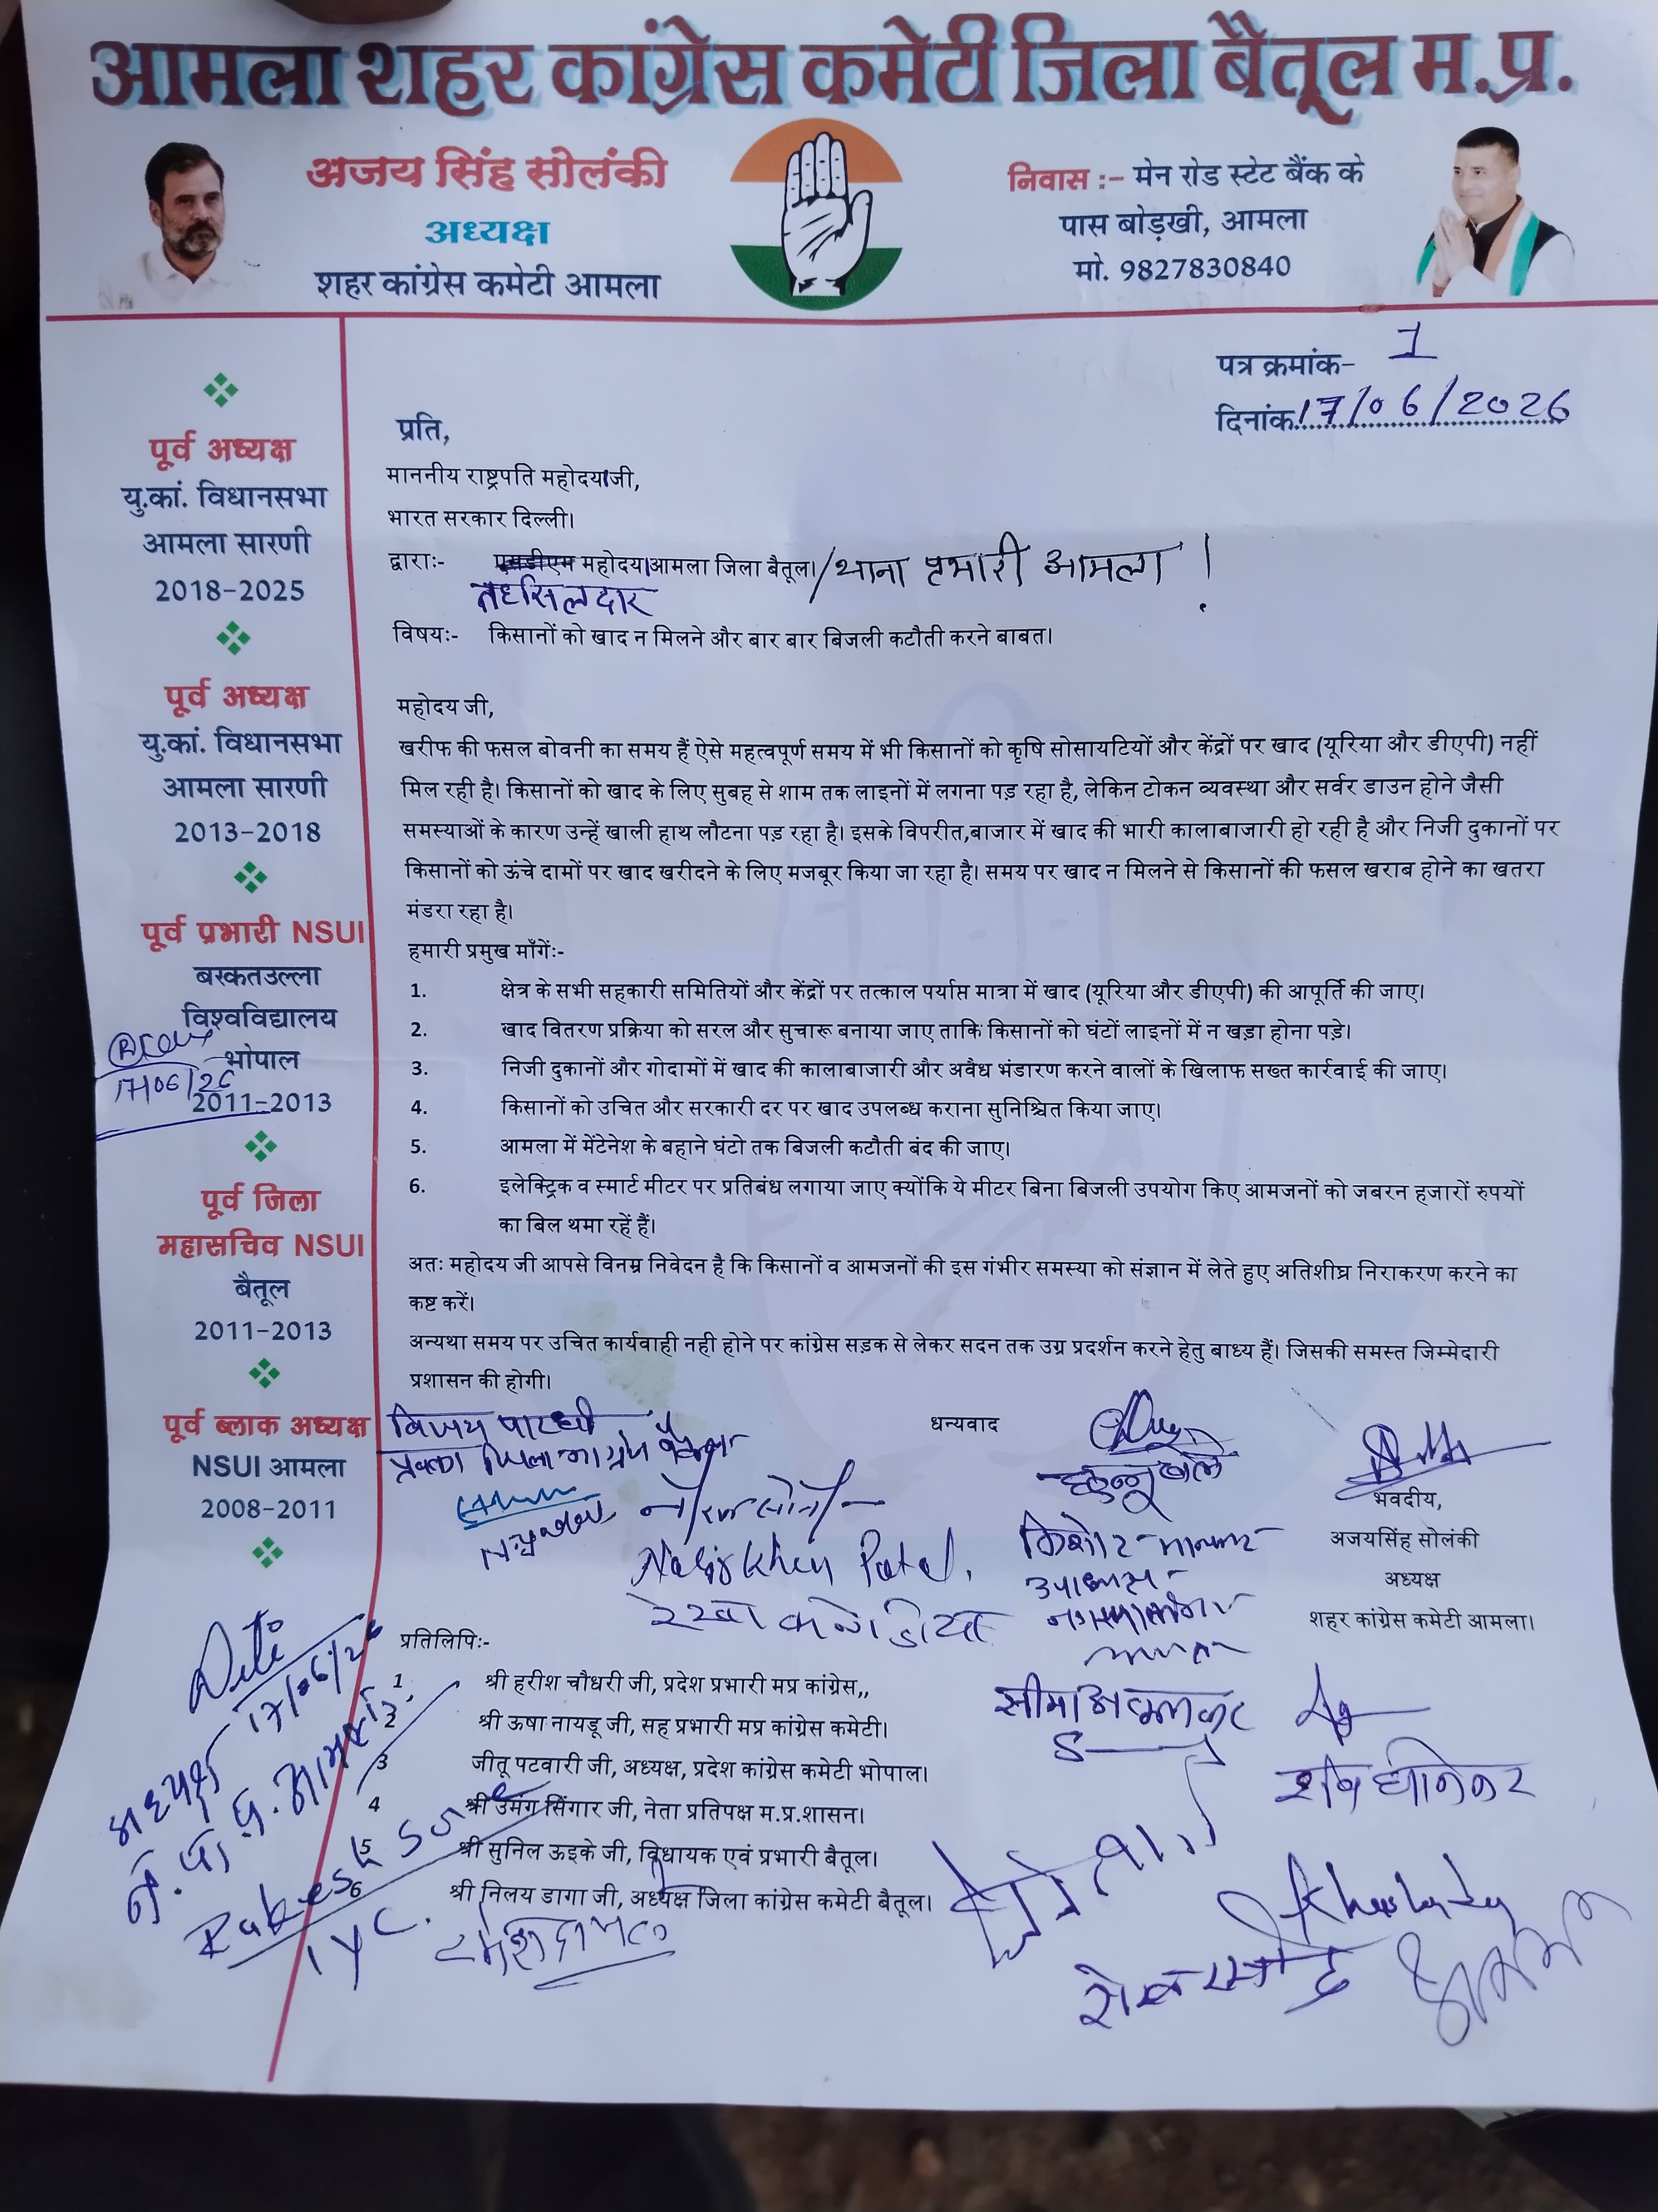 आमला शहर कांग्रेस कमेटी जिला बैतूल म.प्र.
अजय सिंह सोलंकी
अध्यक्ष
शहर कांग्रेस कमेटी आमला
निवास :- मेन रोड स्टेट बैंक के
पास बोड़खी, आमला
मो. 9827830840
पत्र क्रमांक- 1
दिनांक 17/06/2026
पूर्व अध्यक्ष
यु.कां. विधानसभा
आमला सारणी
2018-2025
पूर्व अध्यक्ष
यु.कां. विधानसभा
आमला सारणी
2013-2018
पूर्व प्रभारी NSUI
बरकतउल्ला
विश्वविद्यालय
भोपाल
2011-2013
17/06/26
पूर्व जिला
महासचिव NSUI
बैतूल
2011-2013
पूर्व ब्लाक अध्यक्ष
NSUI आमला
2008-2011
प्रति,
माननीय राष्ट्रपति महोदया जी,
भारत सरकार दिल्ली।
द्वाराः- एसडीएम महोदय आमला जिला बैतूल। / थाना प्रभारी आमला !
तहसिलदार
विषयः- किसानों को खाद न मिलने और बार बार बिजली कटौती करने बाबत।
महोदय जी,
खरीफ की फसल बोवनी का समय हैं ऐसे महत्वपूर्ण समय में भी किसानों को कृषि सोसायटियों और केंद्रों पर खाद (यूरिया और डीएपी) नहीं
मिल रही है। किसानों को खाद के लिए सुबह से शाम तक लाइनों में लगना पड़ रहा है, लेकिन टोकन व्यवस्था और सर्वर डाउन होने जैसी
समस्याओं के कारण उन्हें खाली हाथ लौटना पड़ रहा है। इसके विपरीत,बाजार में खाद की भारी कालाबाजारी हो रही है और निजी दुकानों पर
किसानों को ऊंचे दामों पर खाद खरीदने के लिए मजबूर किया जा रहा है। समय पर खाद न मिलने से किसानों की फसल खराब होने का खतरा
मंडरा रहा है।
हमारी प्रमुख माँगेंः-
1. क्षेत्र के सभी सहकारी समितियों और केंद्रों पर तत्काल पर्याप्त मात्रा में खाद (यूरिया और डीएपी) की आपूर्ति की जाए।
2. खाद वितरण प्रक्रिया को सरल और सुचारू बनाया जाए ताकि किसानों को घंटों लाइनों में न खड़ा होना पड़े।
3. निजी दुकानों और गोदामों में खाद की कालाबाजारी और अवैध भंडारण करने वालों के खिलाफ सख्त कार्रवाई की जाए।
4. किसानों को उचित और सरकारी दर पर खाद उपलब्ध कराना सुनिश्चित किया जाए।
5. आमला में मेंटेनेश के बहाने घंटो तक बिजली कटौती बंद की जाए।
6. इलेक्ट्रिक व स्मार्ट मीटर पर प्रतिबंध लगाया जाए क्योंकि ये मीटर बिना बिजली उपयोग किए आमजनों को जबरन हजारों रुपयों
का बिल थमा रहें हैं।
अतः महोदय जी आपसे विनम्र निवेदन है कि किसानों व आमजनों की इस गंभीर समस्या को संज्ञान में लेते हुए अतिशीघ्र निराकरण करने का
कष्ट करें।
अन्यथा समय पर उचित कार्यवाही नही होने पर कांग्रेस सड़क से लेकर सदन तक उग्र प्रदर्शन करने हेतु बाध्य हैं। जिसकी समस्त जिम्मेदारी
प्रशासन की होगी।
धन्यवाद
विजय पारधी
किशोर
उपाध्यक्ष
भवदीय,
अजयसिंह सोलंकी
अध्यक्ष
शहर कांग्रेस कमेटी आमला।
प्रतिलिपिः-
1. श्री हरीश चौधरी जी, प्रदेश प्रभारी मप्र कांग्रेस,,
2 श्री ऊषा नायडू जी, सह प्रभारी मप्र कांग्रेस कमेटी।
3 जीतू पटवारी जी, अध्यक्ष, प्रदेश कांग्रेस कमेटी भोपाल।
4 श्री उमंग सिंगार जी, नेता प्रतिपक्ष म.प्र.शासन।
5 श्री सुनिल ऊइके जी, विधायक एवं प्रभारी बैतूल।
6 श्री निलय डागा जी, अध्यक्ष जिला कांग्रेस कमेटी बैतूल।
17/06/26
अध्यक्ष
Rakesh
IYC.